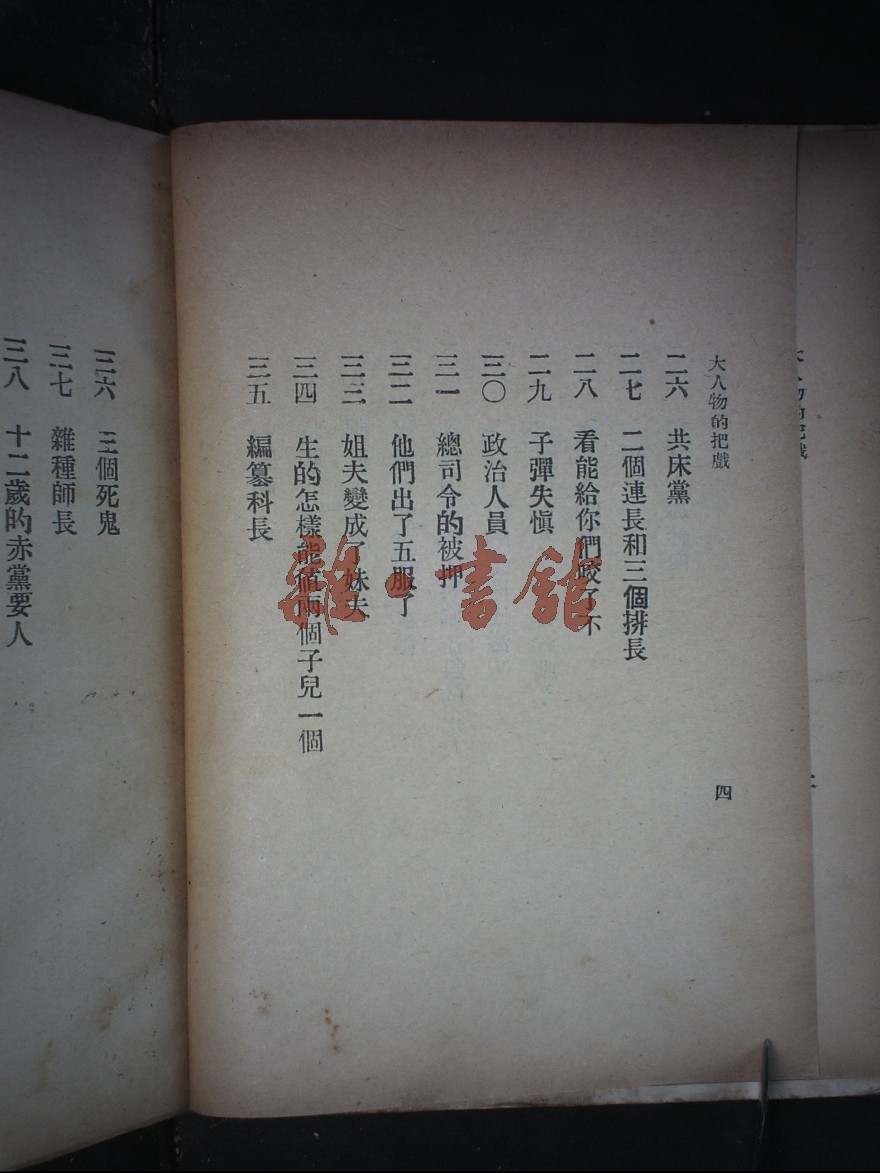 大人物的把戲
二六 共床黨
二七 二個連長和三個排長
二八 看能給你們咬了不
二九 子彈失慎
三〇 政治人員
三一 總司令的被押
三二 他們出了五服了
三三 姐夫變成了妹夫
三四 生的怎樣能值兩個子兒一個
三五 編纂科長
四
三六 三個死鬼
三七 雜種師長
三八 十二歲的赤黨要人
雜·書館